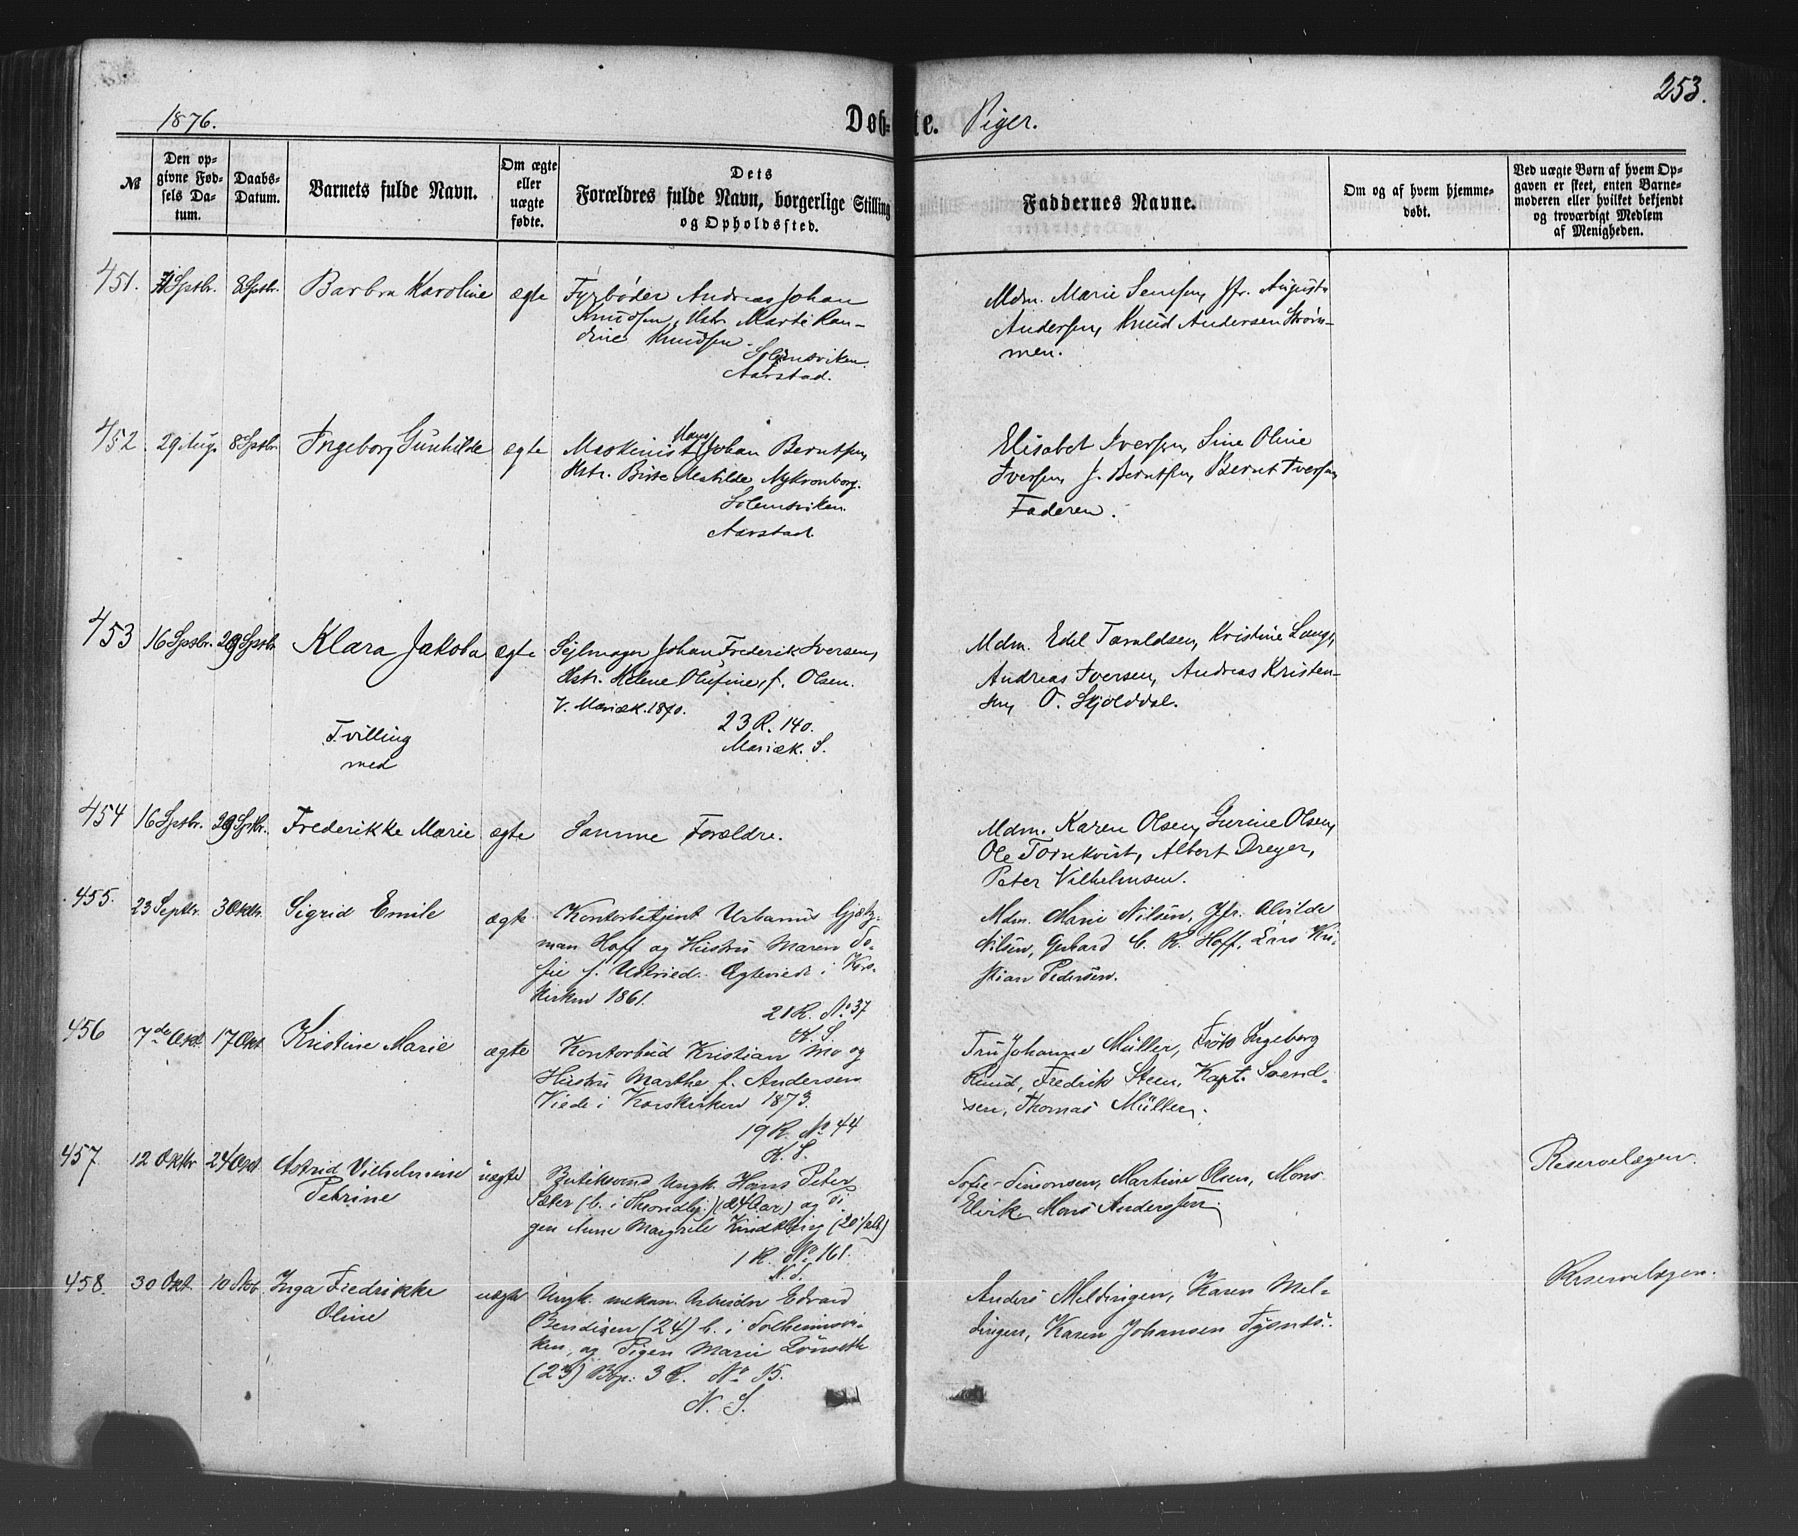 253.
1876.
Døb-te. Piger.
№
Den op-
givne Fød-
sels Da-
tum.
Daabs-
Datum.
Barnets fulde Navn.
Om ægte
eller
uægte
fødte.
Dets
Forældres fulde Navn, borgerlige Stilling
og Opholdssted.
Faddernes Navne.
Om og af hvem hjemme-
døbt.
Ved uægte Børn af hvem Op-
gaven er skeet, enten Barne-
moderen eller hvilket bekjendt
og troværdigt Medlem
af Menigheden.
451. Septbr. 8 Septbr. Barbra Karoline ægte Fyrbøder Andreas Johan
Knudsen, Hstr. Marte Ran-
dine Knudsen.
Solemsviken
Aarstad.
Mdm. Marie Jensen, Jfr. Augusta
Andersen, Knud Andersen Strøm-
men.
452 29 Aug. 8 Septbr. Ingeborg Gunhilde ægte Maskinist Hans Johan Berntsen,
Hstr. Birte Matilde Nykronborg.
Solemsviken
Aarstad.
Elisabet Iversen, Sine Oline
Iversen, J. Berntsen, Bernt Iversen,
Faderen.
453 16 Septbr. 29 Septbr. Klara Jakoba ægte Sejlmager Johan Frederik Iversen,
Hstr. Helene Olufine, f. Olsen.
V. Mariæk. 1870.
23 R. 140.
Mariæk. S.
Tvilling
med
Mdm. Edel Taraldsen, Kristine Lang,
Andreas Iversen, Andreas Kristen-
sen, O. Skjolddal.
454 16 Septbr. 29 Septbr. Frederikke Marie ægte Samme Forældre.
Mdm. Karen Olsen, Gurine Olsen,
Ole Tornkvist, Albert Dreyer,
Peter Vilhelmsen.
455. 23 Septbr. 3 Oktbr. Sigrid Emile ægte Kontorbetjent Urbanus Gjæty-
man Hoff og Hustru Maren So-
fie f. Ustvied. Ægteviede i Kors-
kirken 1861.
21 R. No 37
K. S.
Mdm. Marie Nilsen, Jfr. Alvilde
Nilsen, Gerhard C. R. Hoff. Lars Kri-
stian Pedersen.
456 7de Okt. 17 Okt. Kristine Marie ægte Kontorbud Kristian Mo og
Hustru Marthe f. Andersen
Viede i Korskirken 1873.
19 R. No 44
K. S.
Fru Johanne Müller, Frøk Ingeborg
Ruud, Fredrik Steen, Kapt. Svend-
sen, Thomas Müller.
457. 12 Oktbr 24 Okt. Astrid Vilhelmine
Petrine
uægte Butiksvend Ungk. Hans Peter
Sæter (b. i Throndhj.) (24 Aar) og Pi-
gen Anne Margrete
1 R. No 161.
N. S.
Sofie Simonsen, Martine Olsen, Mons
Elvik, Mons Anderssen.
Reservelægen.
458. 30 Okt. 10 Nov. Inga Fredrikke
Oline
uægte Ungk. mekan. Arbeider Edvard
Bendixen (24) b. i Solheimsvi-
ken, og Pigen Marie Lönseth
(23) Bop: 3 R. No 15.
N. S.
Anders Meldingen, Karen Mel-
dingen, Karen Johansen Tysnæs.
Reservelægen.